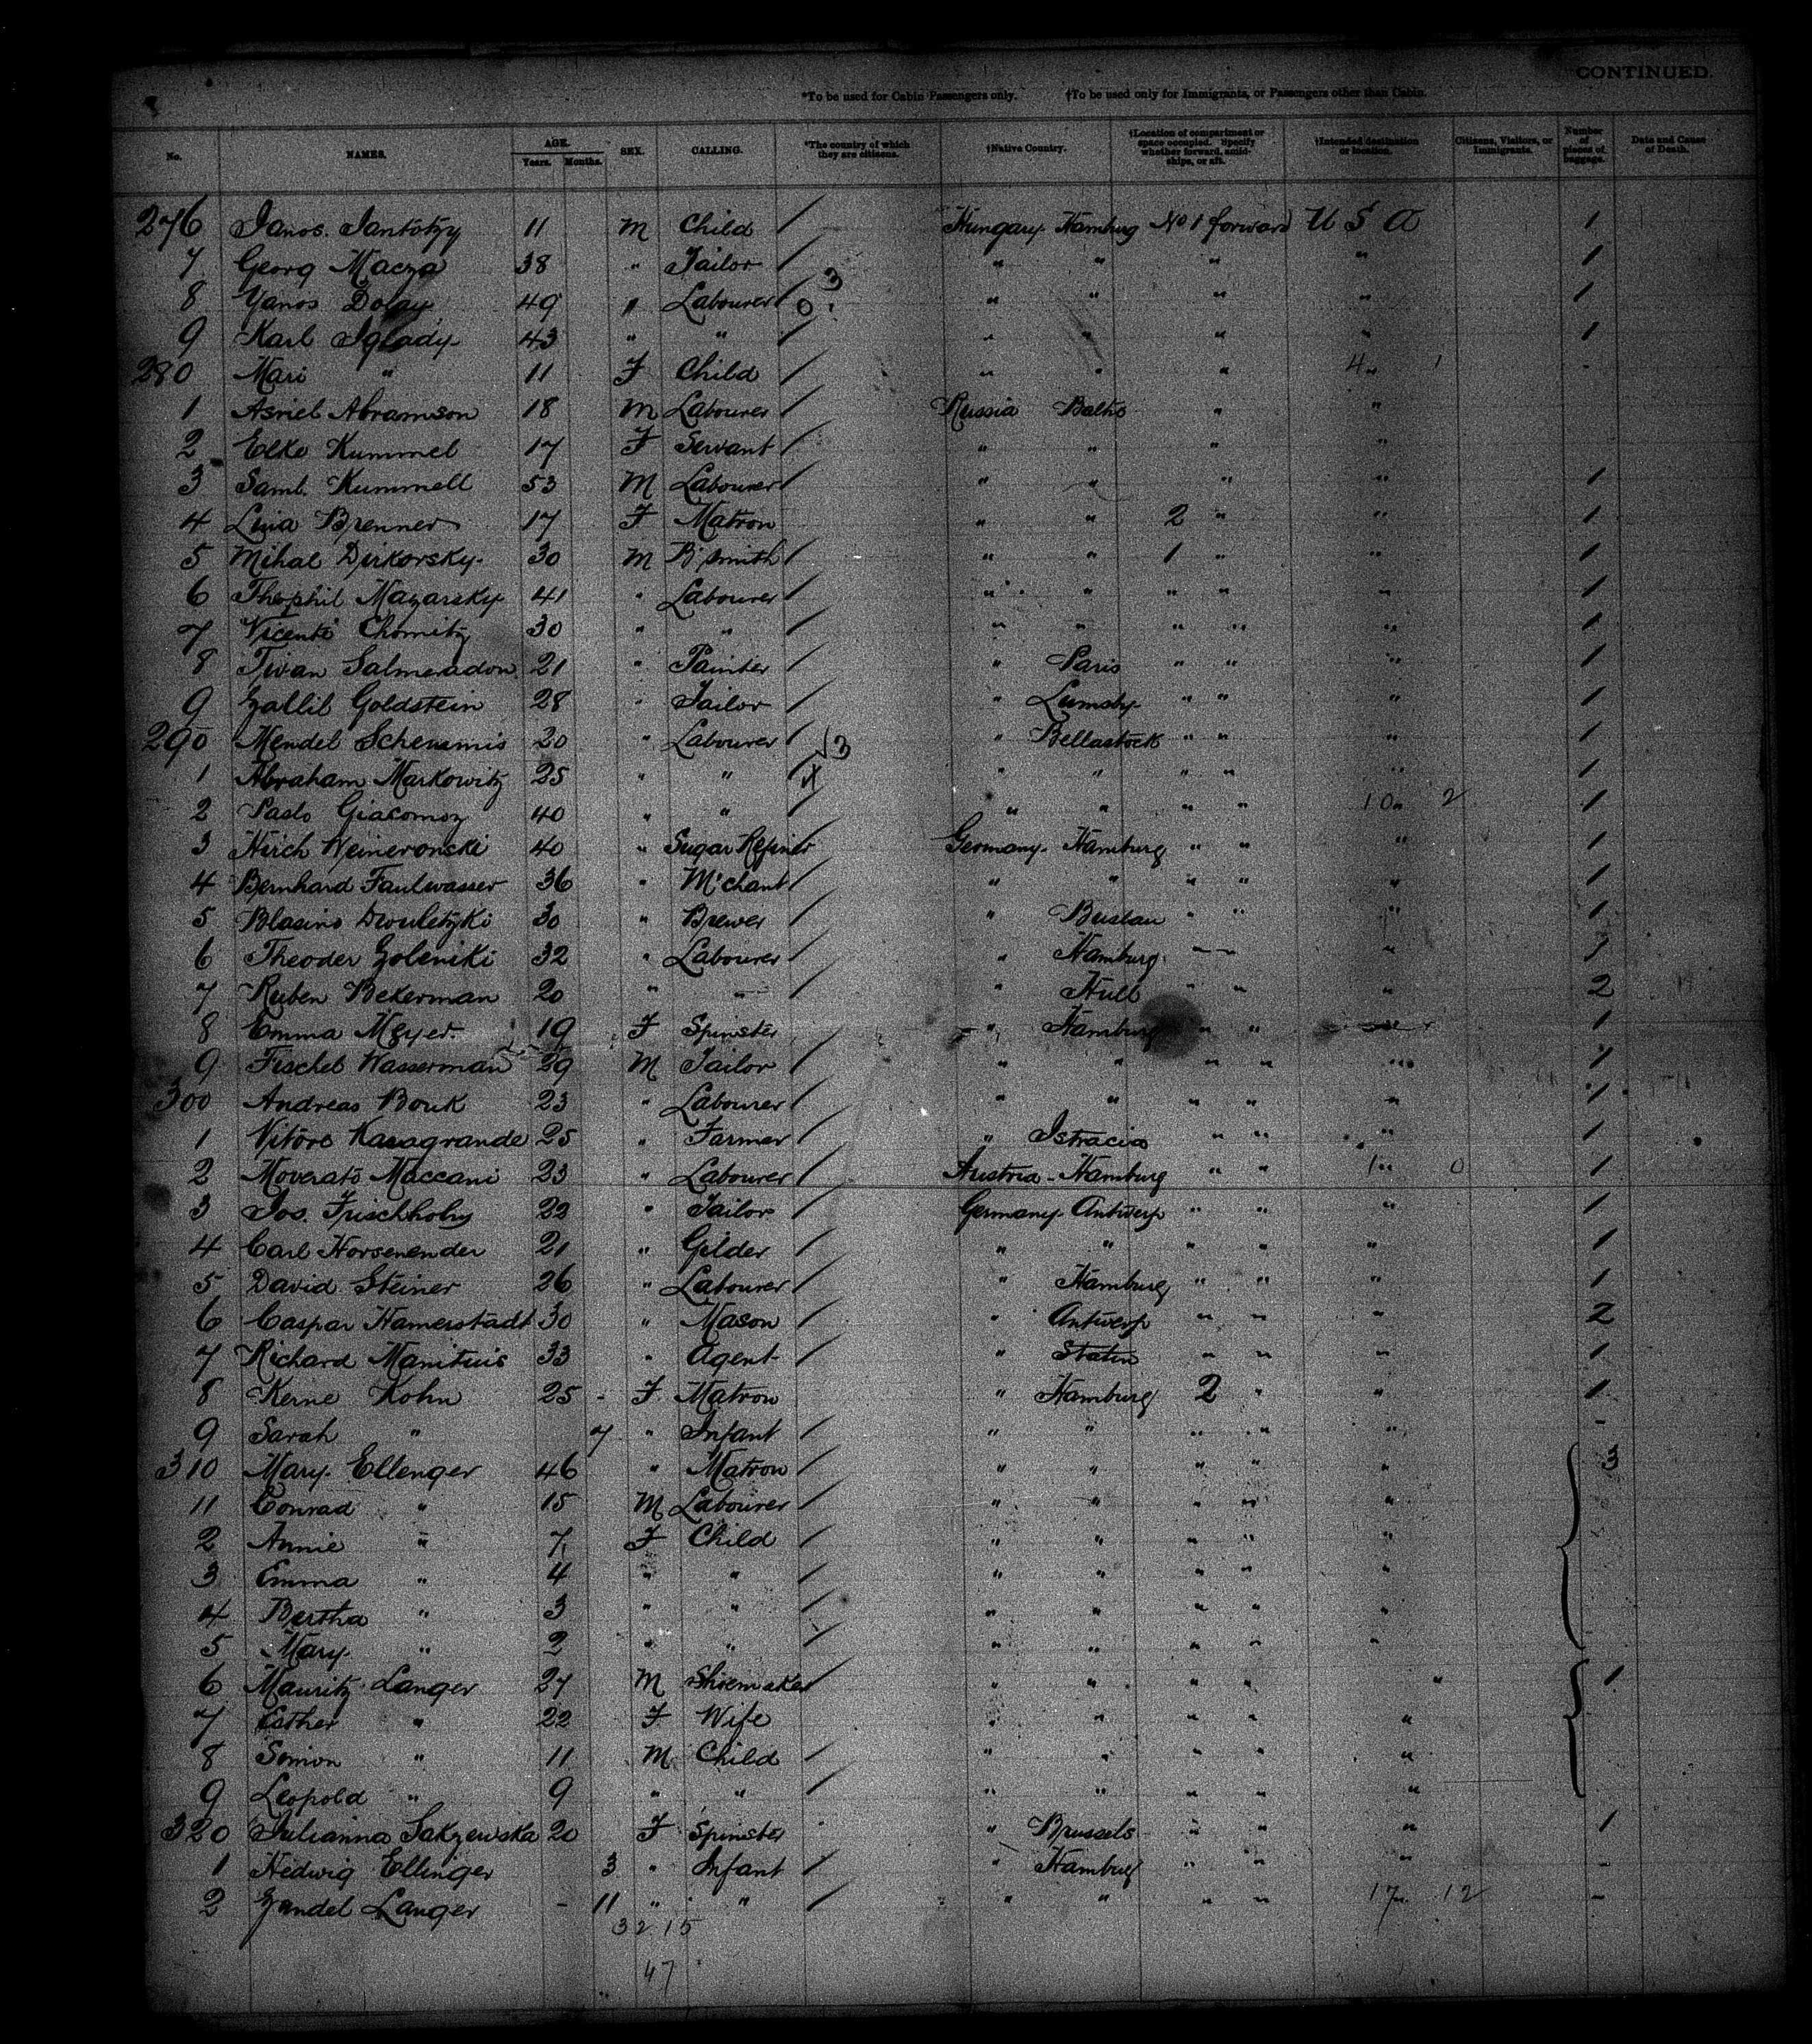 CONTINUED.
*To be used for Cabin Passengers only. †To be used only for Immigrants, or Passengers other than Cabin.
No. NAMES. AGE. Years. Months. SEX. CALLING. *The country of which they are citizens. †Native Country. †Location of compartment or space occupied. Specify whether forward, amidships, or aft. †Intended destination or location. Citizens, Visitors, or Immigrants. Number of pieces of baggage. Date and Cause of Death.
276 Janos. Santotzy 11 M Child / Hungary. Hamburg No 1 forward U S A 1
7 Georg Macza 38 " Tailor / " " " " 1
8 Yanos Dolay 49 " Labourer / 3 0 " " " " 1
9 Karl Iglady 43 " " / " " " " 1
280 Mari " 11 F Child / " " " 4 " 1
1 Asriel Abramson 18 M Labourer / Russia " "
2 Elke Kummel 17 F Servant / " " " "
3 Saml. Kummell 53 M Labourer / " " " " 1
4 Lina Brenner 17 F Matron " " 2 " " 1
5 Mihal Dirkorsky 30 M B'smith / " " 1 " " 1
6 Thephil Mazarsky 41 " Labourer / " " " " " 1
7 Vicenti Chomitz 30 " " / " " " " " 1
8 Tivan Salmeradon 21 " Painter / " Paris " " " 1
9 Zallil Goldstein 28 " Tailor / " Lumsky " " " 1
290 Mendel Scheremis 20 " Labourer / 3 " Bellastock " " " 1
1 Abraham Markowitz 25 " " / " " " " " 1
2 Paslo Giacomoz 40 " " / " " " " 10 " 2 1
3 Hirch Weineronski 40 " Sugar Refiner Germany. Hamburg " " " 1
4 Bernhard Faulwasser 36 " M'chant / " " " " " 1
5 Blasino 30 " Brewer / " Buslau " " " 1
6 Theoder Goleniki 32 " Labourer / " Hamburg " " " 1
7 Ruben Bekerman 20 " " / " Hull " " " 2
8 Emma Meyer. 19 F Spinster / " Hamburg " " " 1
9 Fischel Wasserman 29 M Tailor / " " " " " 1
300 Andreas Bouk 23 " Labourer / " " " " " 1
1 Vitore Kasagrande 25 " Farmer / " Istracia " " " 1
2 Moverato Maccani 23 " Labourer / Austria - Hamburg " " 1 " 0 1
3 Jos. Frischholz 22 " Tailor / Germany. Antwerp " " " 1
4 Carl Horsenender 21 " Gilder / " " " " " 1
5 David Steiner 26 " Labourer / " Hamburg " " " 1
6 Caspar Hamerstadt 30 " Mason / " Antwerp " " " 2
7 Richard Manituis 33 " Agent / " Statin " " " 1
8 Kerne Kohn 25 - F Matron " Hamburg 2 " " 1
9 Sarah " 7 " Infant / " " " " " -
310 Mary. Ellenger 46 " Matron / " " " " " 3
11 Conrad " 15 M Labourer / " " " " "
2 Annie " 7 F Child / " " " " "
3 Emma " 4 " " / " " " " "
4 Bertha " 3 " " / " " " " "
5 Mary. " 2 " " / " " " " "
6 Mauritz Langer 27 M Shoemaker / " " " " " 1
7 Esther " 22 F Wife " " " " "
8 Simon " 11 M Child / " " " " "
9 Leopold " 9 " " / " " " " "
320 Julianna Sakzewska 20 F Spinster " Brussels " " " 1
1 Hedwig Ellinger 3 " Infant / " Hamburg " " " -
2 Zendel Langer - 11 " " / " " " " 17 " 12 -
32 15
47